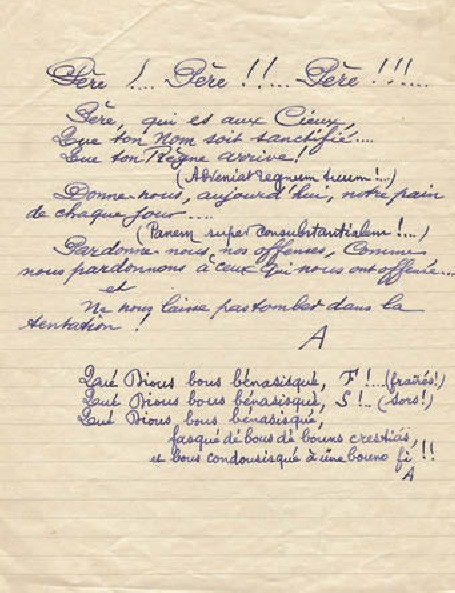 Père !... Père !!... Père !!!...
Père, qui es aux Cieux,
Que ton Nom soit sanctifié....
Que ton Règne arrive!
(Adveniat regnum tuum !...)
Donne-nous, aujourd'hui, notre pain
de chaque jour .....
(Panem super consubstantialem !...)
Pardonne-nous, nos offenses, Comme
nous pardonnons à ceux qui nous ont offensé...
et
Ne nous laisse pas tomber dans la
tentation !
A
Qué Dious bous bénasisqué, F !...(fraïrés!)
Qué Dious bous bénasisqué, S !.. (sors!)
Qué Dious bous bénasisqué,
fasqué dé bous dé bouns crestiás,
et bous condousisqué à üno bouno fi !!
A